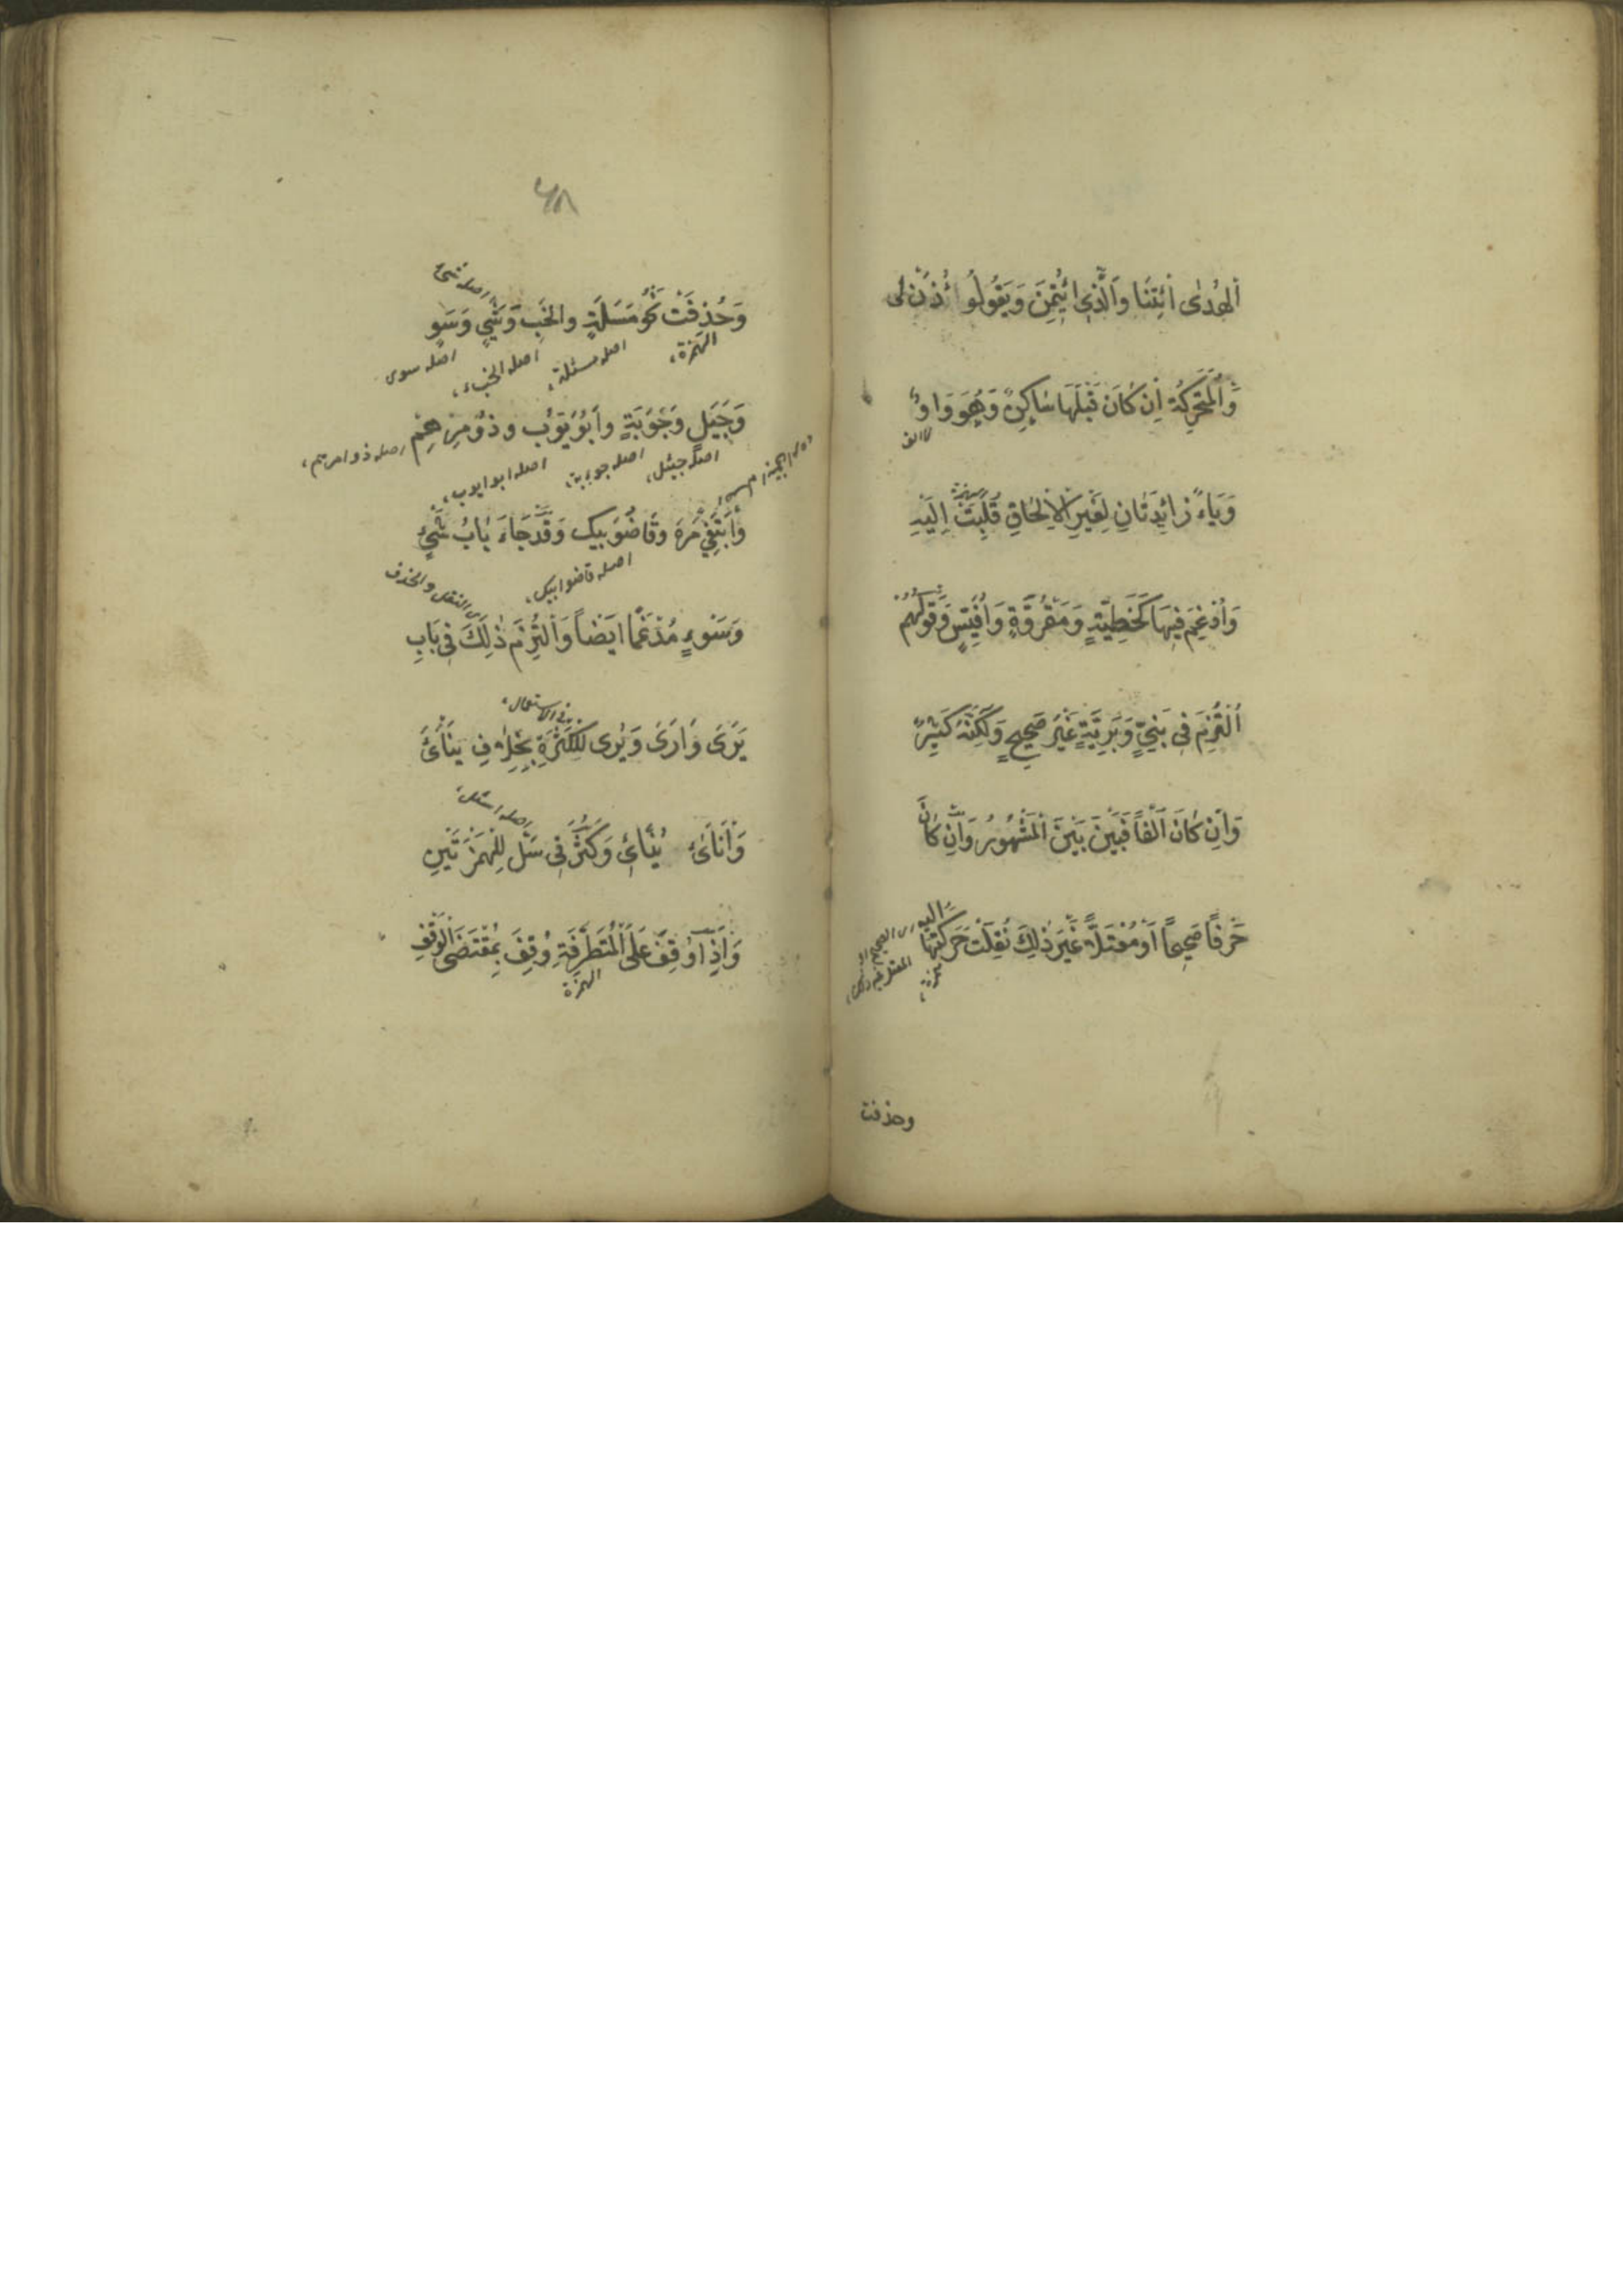 اَلْهُدٰى ائْتِنَا وَالَّذِى ائْتُمِنَ وَيَقُولُوا ئْذَنْ لِى
وَالْمُتَحَرِّكَةُ اِنْ كَانَ قَبْلَهَا سَاكِنٌ وَهُوَ وَاوٌ
لا الف
وَيَاءٌ زَائِدَتَانِ لِغَيْرِ الْاِلْحَاقِ قُلِبَتْ اِلَيْهِ
وَاُدْغِمَ فِيهَا كَخَطِيَّةٍ وَمَقْرُوَّةٍ وَاُفَيِّسٍ وَقَوْلُهُمْ
اُلْتُزِمَ فِى نَبِىٍّ وَبَرِيَّةٍ غَيْرُ صَحِيحٍ وَلٰكِنَّهُ كَثِيرٌ
وَاِنْ كَانَ اَلْفًا فَبَيْنَ بَيْنَ الْمَشْهُورُ وَاِنْ كَانَ
حَرْفًا صَحِيحًا اَوْ مُعْتَلًّا غَيْرَ ذٰلِكَ نُقِلَتْ حَرَكَتُهَا اليه
اى الصحيح او
المعتل غير ذلك
وحذفت
٤٨
اصله شىء
وَحُذِفَتْ نَحْوُ مَسَلَةٍ وَالْخَبِ وَشَىٍ وَسَوٍ
الهمزة
اصله مسئلة
اصله الخبء
اصله سوء
وَجَيَلٍ وَجَوَبَةٍ وَاَبُوَيُّوبَ وَذُوَمْرِهِمْ
اصله ذو امرهم
اصله جيئل
اصله جوءبة
اصله ابو ايوب
وَابْتَغِىَ مْرَهُ وَقَاضُوَبِيكَ وَقَدْ جَاءَ بَابُ شَىْءٍ
اصله قاضوا ابيك
اى النقل والحذف
وَسَوْءٍ مُدْغَمًا اَيْضًا وَالْتُزِمَ ذٰلِكَ فِى بَابِ
فى الاستعمال
يَرٰى وَاَرٰى وَيُرٰى لِلْكَثْرَةِ بِخِلَافِ يَنْأَى
اصله اسئل
وَاَنْأَى يُنْئِى وَكَثُرَ فِى سَلْ لِلْهَمْزَتَيْنِ
وَاِذَا وُقِفَ عَلَى الْمُتَطَرِّفَةِ وُقِفَ بِمُقْتَضَى الْوَقْفِ
الهمزة